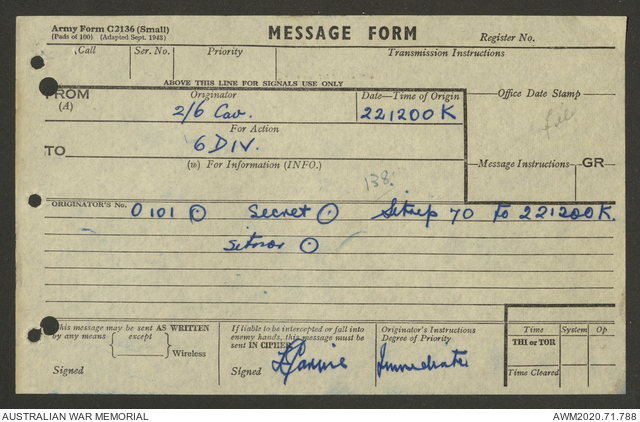 Army Form C2136 (Small)
(Pads of 100) (Adapted Sept. 1943)
MESSAGE FORM
Register No.
Call Ser. No. Priority Transmission Instructions
ABOVE THIS LINE FOR SIGNALS USE ONLY
FROM (A) Originator Date—Time of Origin Office Date Stamp
2/6 Cav. 221200K
For Action
TO 6 DIV.
(w) For Information (INFO.) Message Instructions GR
138.
ORIGINATOR'S No. O 101 ⊙ Secret ⊙ Sitrep 70 to 221200K.
sitnor ⊙
This message may be sent AS WRITTEN by any means except Wireless
If liable to be intercepted or fall into enemy hands, this message must be sent IN CIPHER.
Originator's Instructions Degree of Priority
Time System Op
THI or TOR
Time Cleared
Signed
Signed
Immediate
AUSTRALIAN WAR MEMORIAL
AWM2020.71.788